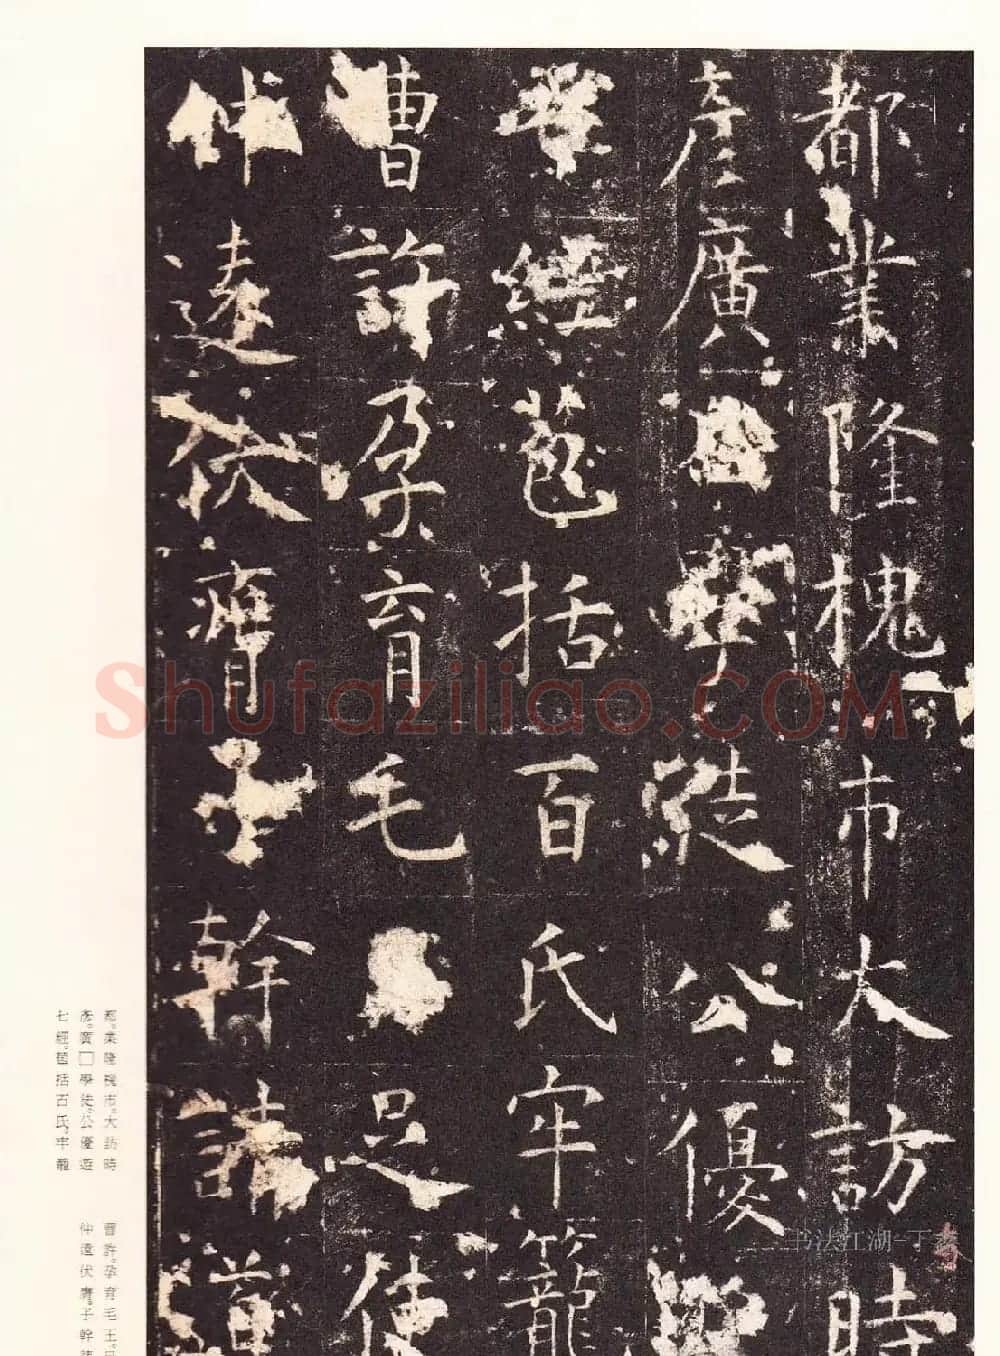 都業隆槐市大訪時
彥廣學徒公優
經苞括百氏牢籠
曹許孕育毛足使
仲遠伏膺子幹請道
都。業隆槐市。大訪時
彥。廣□學徒。公優遊
七經。苞括百氏。牢籠
曹許。孕育毛王。
仲遠伏膺。子幹
Shufaziliao.COM
书法江湖-丁